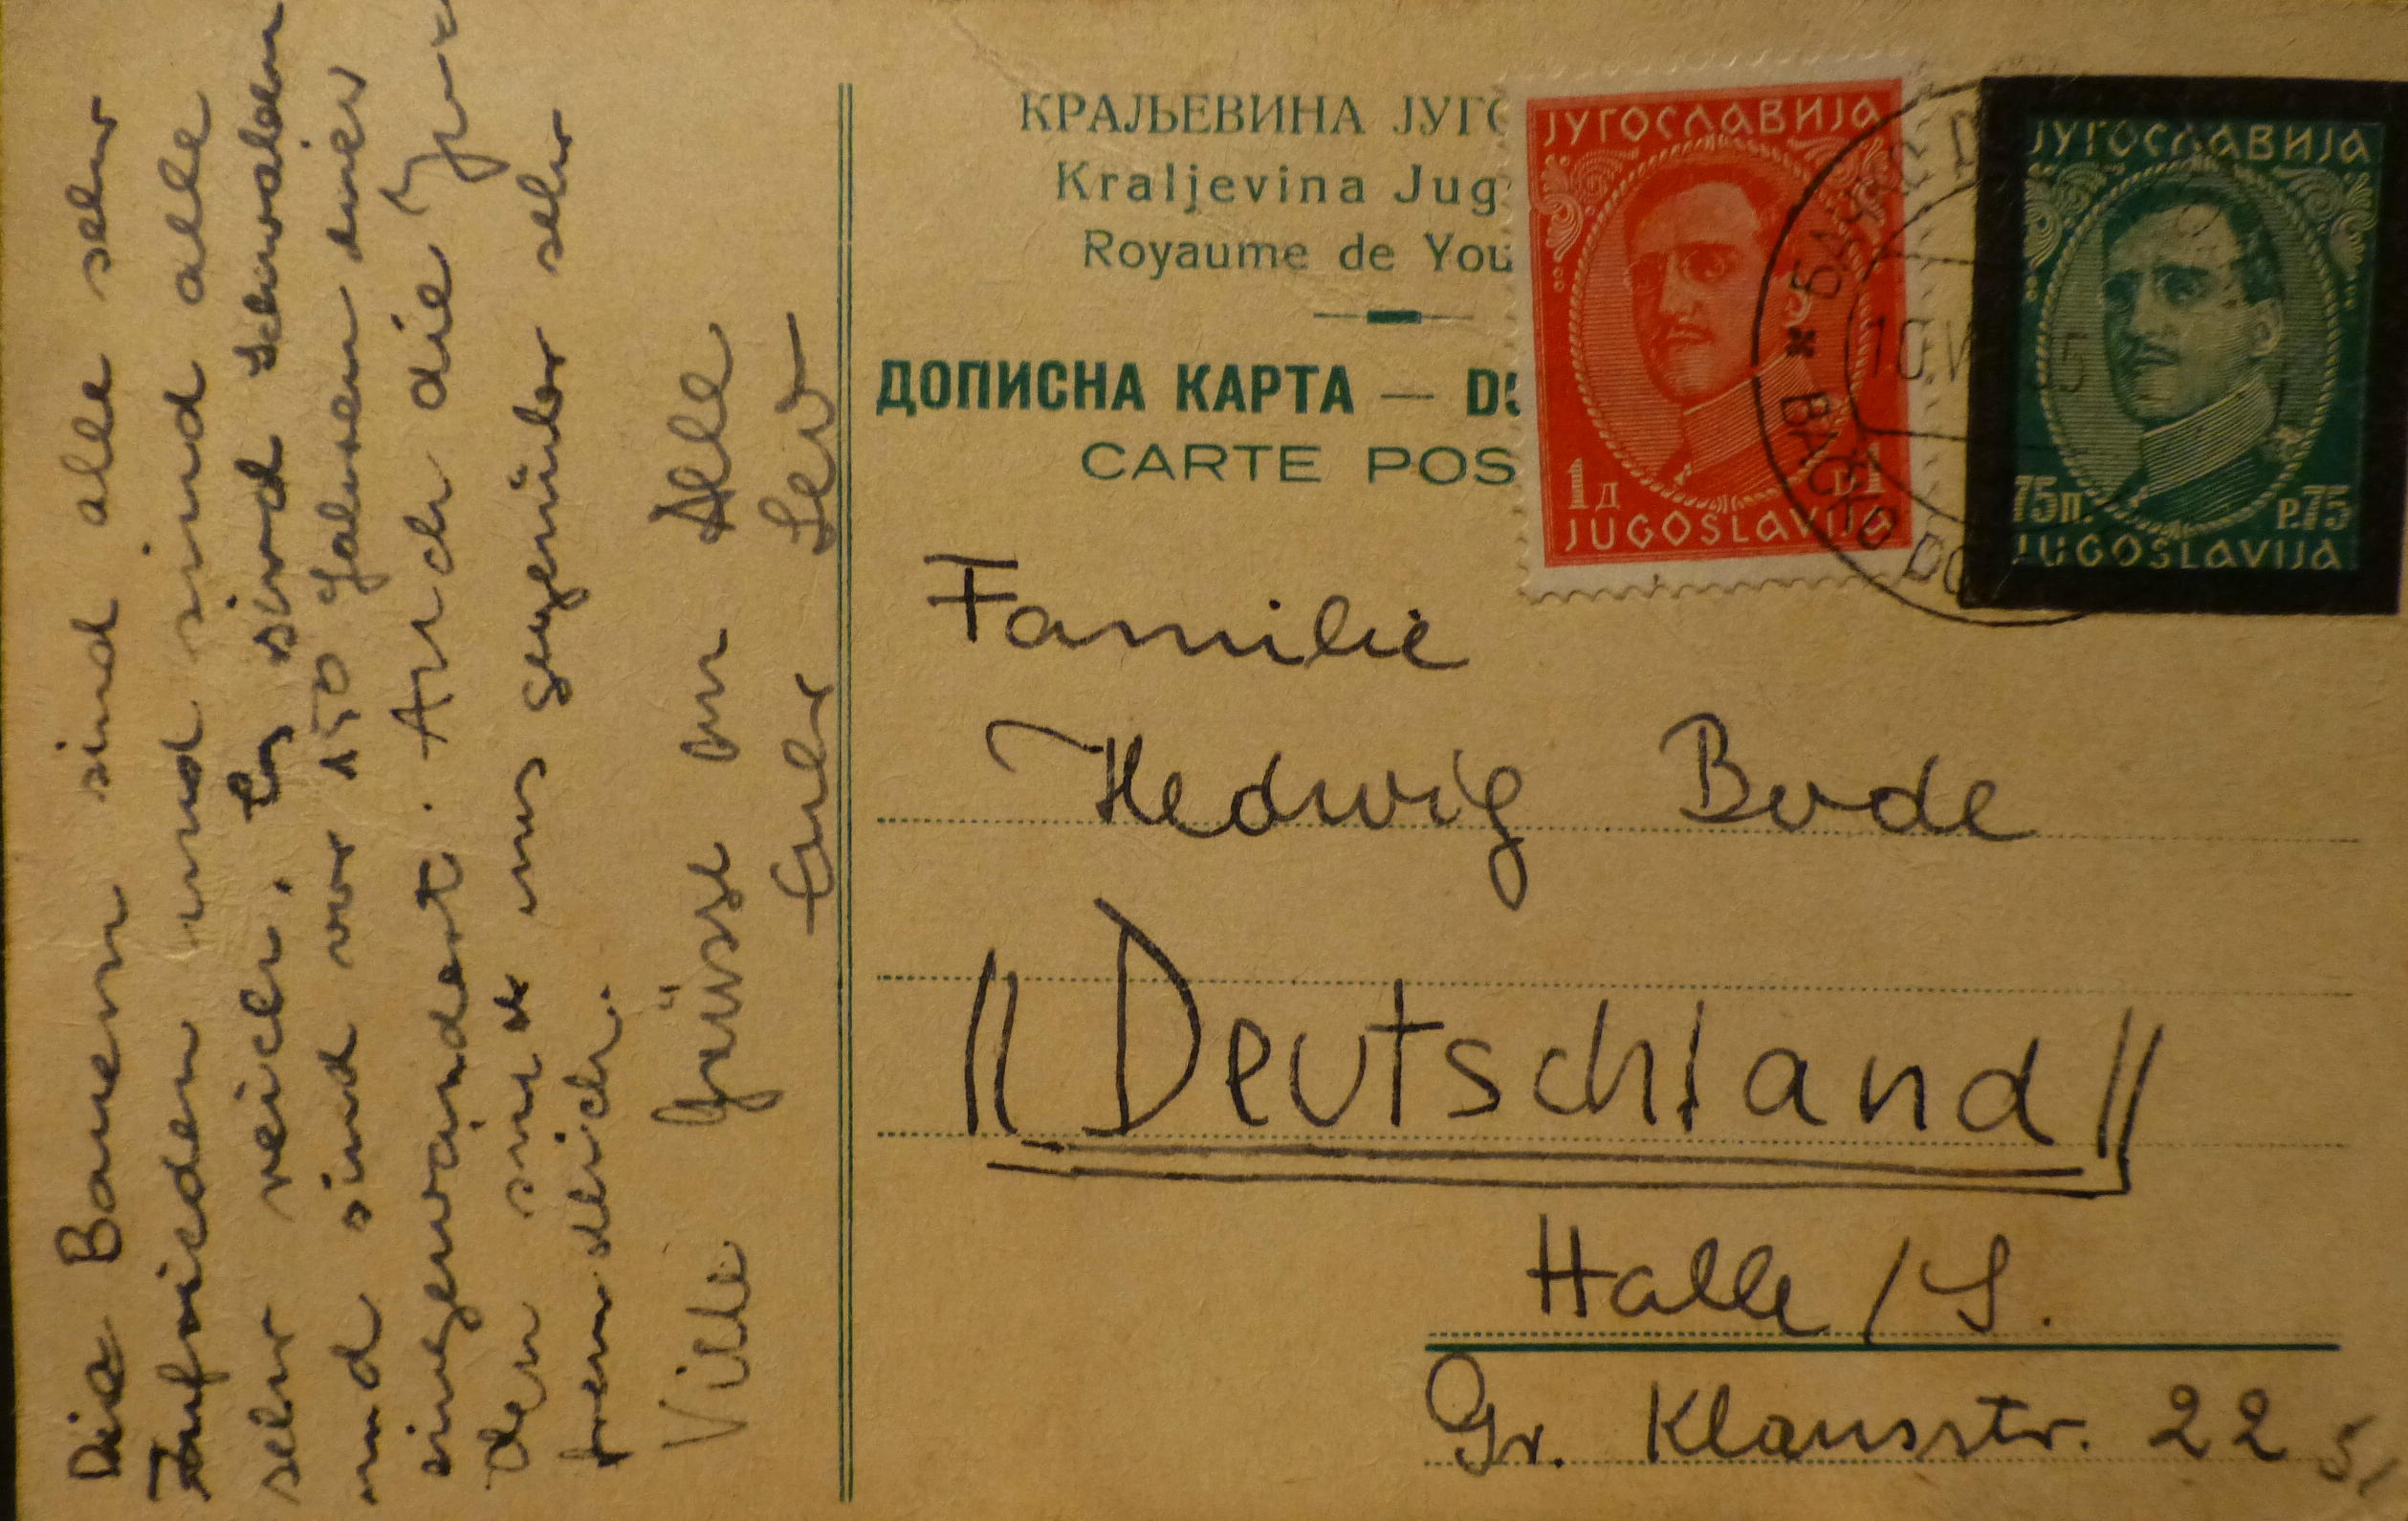 Die Bauern sind alle sehr
zufrieden und sind alle
sehr reich. Es sind Schwaben
und sind vor 150 Jahren hier
eingewandert. Auch die
den sind uns gegenüber sehr
freundlich.
Viele Grüsse an Alle
Euer
КРАЉЕВИНА ЈУГО
Kraljevina Jug
Royaume de You
ДОПИСНА КАРТА — D
CARTE POS
ЈУГОСЛАВИЈА
1 Д D 1
JUGOSLAVIJA
ЈУГОСЛАВИЈА
75п. P.75
JUGOSLAVIJA
BAČKO DO
10.V
Familie
Hedwig Bode
"Deutschland"
Halle/S.
Gr. Klausstr. 22